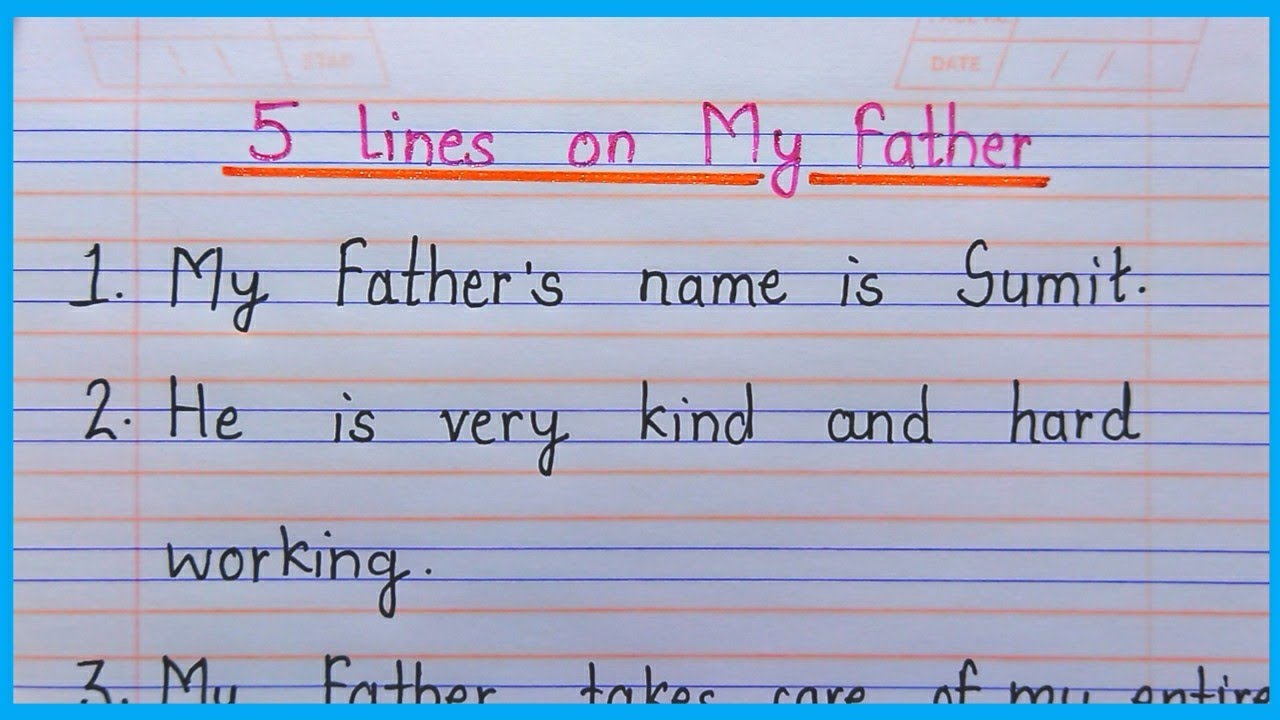 DATE / /
5 lines on My Father
1. My Father's name is Sumit.
2. He is very kind and hard
working.
3. My Father takes care of my entire